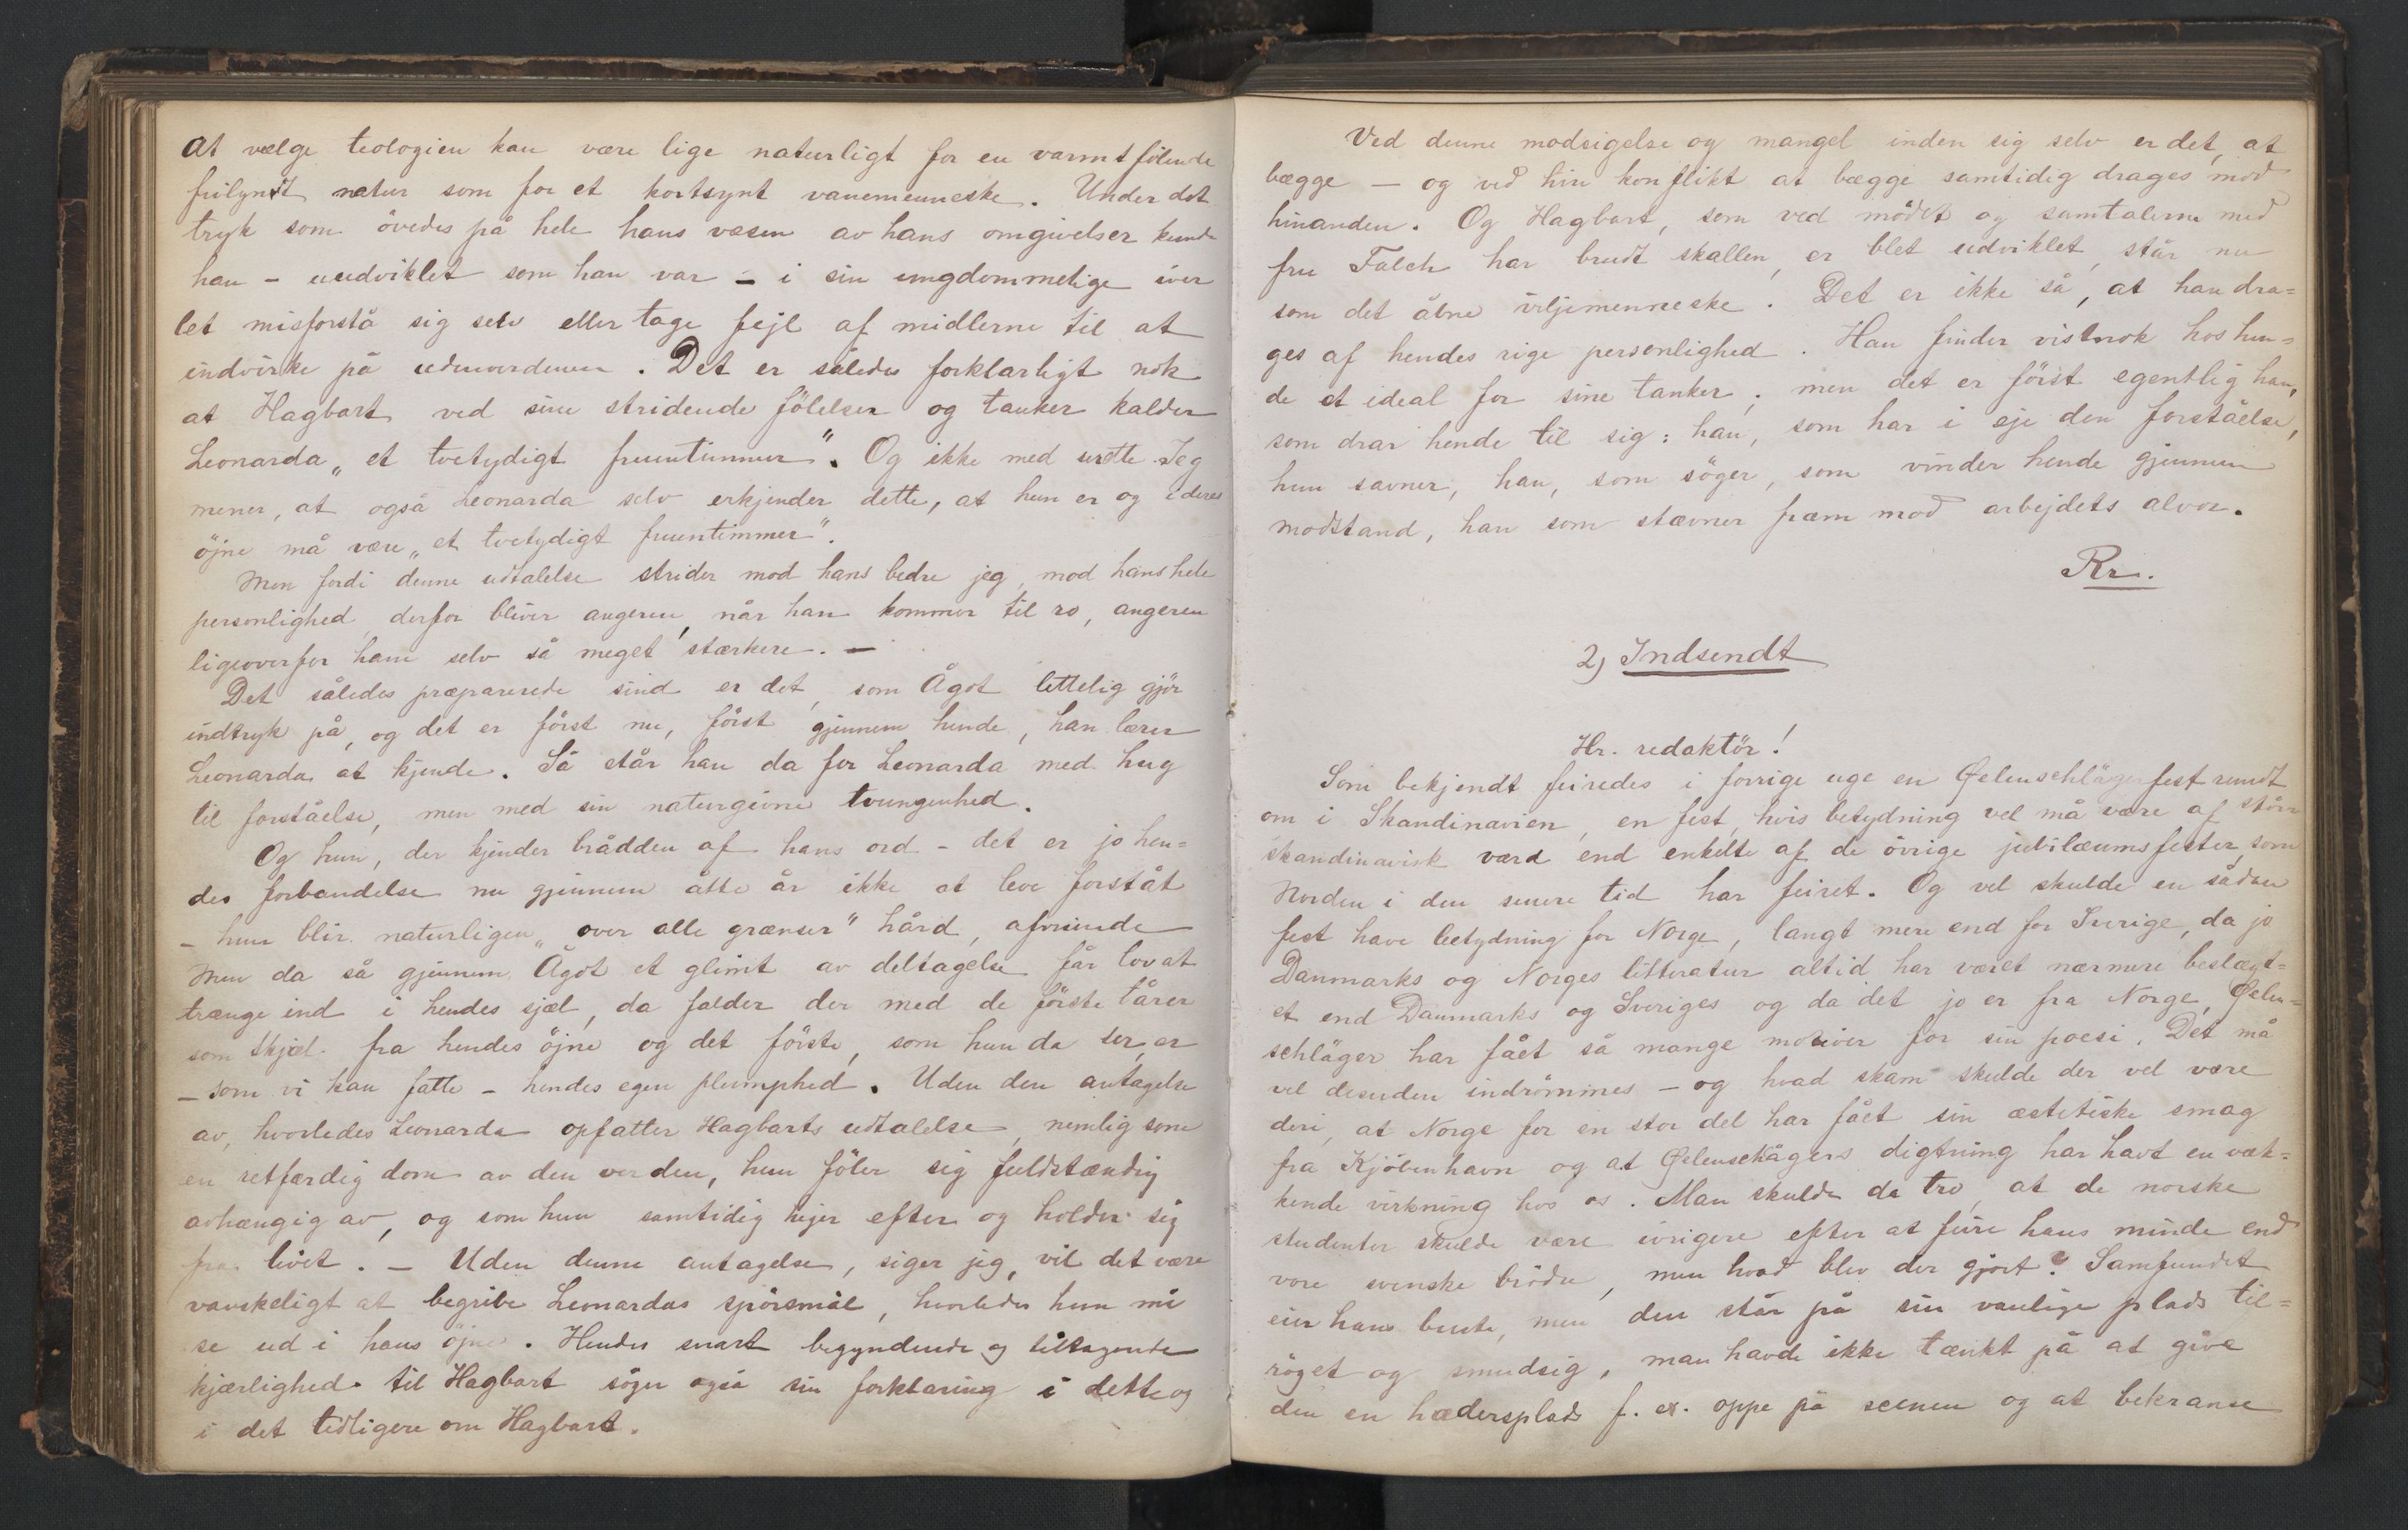 At vælge teologien kan være lige naturligt for en varmtfölende
frilyndt natur som for et kortsynt vanemenneske. Under det
tryk som övedes på hele hans væsen av hans omgivelser kunde
han - uudviklet som han var - i sin ungdommelige iver
let misforstå sig selv eller tage fejl af midlerne til at
indvirke på udenverdenen. Det er således forklarligt nok
at Hagbart ved sine stridende fölelser og tanker kalder
Leonarda „et tvetydigt fruentimmer". Og ikke med urette. Jeg
mener, at også Leonarda selv erkjender dette, at hun er og i deres
öjne må være „et tvetydigt fruentimmer".
Men fordi denne udtalelse strider mod hans bedre jeg, mod hans hele
personlighed, derfor bliver angeren, når han kommer til ro, angeren
ligeoverfor ham selv så meget stærkere. —
Det således præparerede sind er det, som Ågot lettelig gjör
indtryk på, og det er först nu, först gjennem hende, han lærer
Leonarda at kjende. Så står han da for Leonarda med hug
til forståelse, men med sin naturgivne tvungenhed.
Og hun, der kjender brådden af hans ord - det er jo hen=
des forbandelse nu gjennem åtte år ikke at leve forståt
- hun blir naturligen „over alle grænser" hård, afvisende
Men da så gjennem Ågot et glimt av deltagelse får lov at
trænge ind i hendes sjæl, da falder der med de förste tårer
som skjæl fra hendes öjne og det förste, som hun da ser, er
- som vi kan fatte - hendes egen plumphed. Uden den antagelse
av, hvorledes Leonarda opfatter Hagbarts udtalelse, nemlig som
en retfærdig dom av den verden, hun föler sig fuldstændig
avhængig av, og som hun samtidig higer efter og holder sig
fra livet. — Uden denne antagelse, siger jeg, vil det være
vanskeligt at begribe Leonardas spörsmål, hvorledes hun må
se ud i hans öjne. Hendes snart begyndende og tiltagende
kjærlighed til Hagbart söger også sin forklaring i dette og
i det tidligere om Hagbart.
Ved denne modsigelse og mangel inden sig selv er det, at
bægge — og ved hin konflikt at bægge samtidig drages mod
hinanden. Og Hagbart, som ved mödet og samtalerne med
fru Falch har brudt skallen, er blet udviklet, står nu
som det åbne viljemenneske. Det er ikke så, at han dra=
ges af hendes rige personlighed. Han finder vistnok hos hen=
de et ideal for sine tanker; men det er först egentlig han,
som drar hende til sig: han, som har i eje den forståelse,
hun savner, han, som söger, som vinder hende gjennem
modstand, han som stævner fræm mod arbejdets alvor.
Rr.
2) Indsendt
Hr. redaktör!
Som bekjendt feiredes i forrige uge en Øelenschlägerfest rundt
om i Skandinavien, en fest, hvis betydning vel må være af större
skandinavisk værd end enkelte af de övrige jubilæumsfester, som
Norden i den senere tid har feiret. Og vel skulde en sådan
fest have betydning for Norge, langt mere end for Sverige, da jo
Danmarks og Norges litteratur altid har været nærmere beslægt=
et end Danmarks og Sveriges og da det jo er fra Norge, Øelen=
schläger har fået så mange motiver for sin poesi. Det må
vel desuden indrömmes — og hvad skam skulde der vel være
deri, at Norge for en stor del har fået sin æstetiske smag
fra Kjöbenhavn og at Øelenschlägers digtning har havt en væk=
kende virkning hos os. Man skulde da tro, at de norske
studenter skulde være ivrigere efter at feire hans minde end
vore svenske brödre, men hvad blev der gjort? Samfundet
eier hans buste, men den står på sin vanlige plads til=
röget og smudsig, man havde ikke tænkt på at give
den en hædersplads f. ex. oppe på scenen og at bekranse